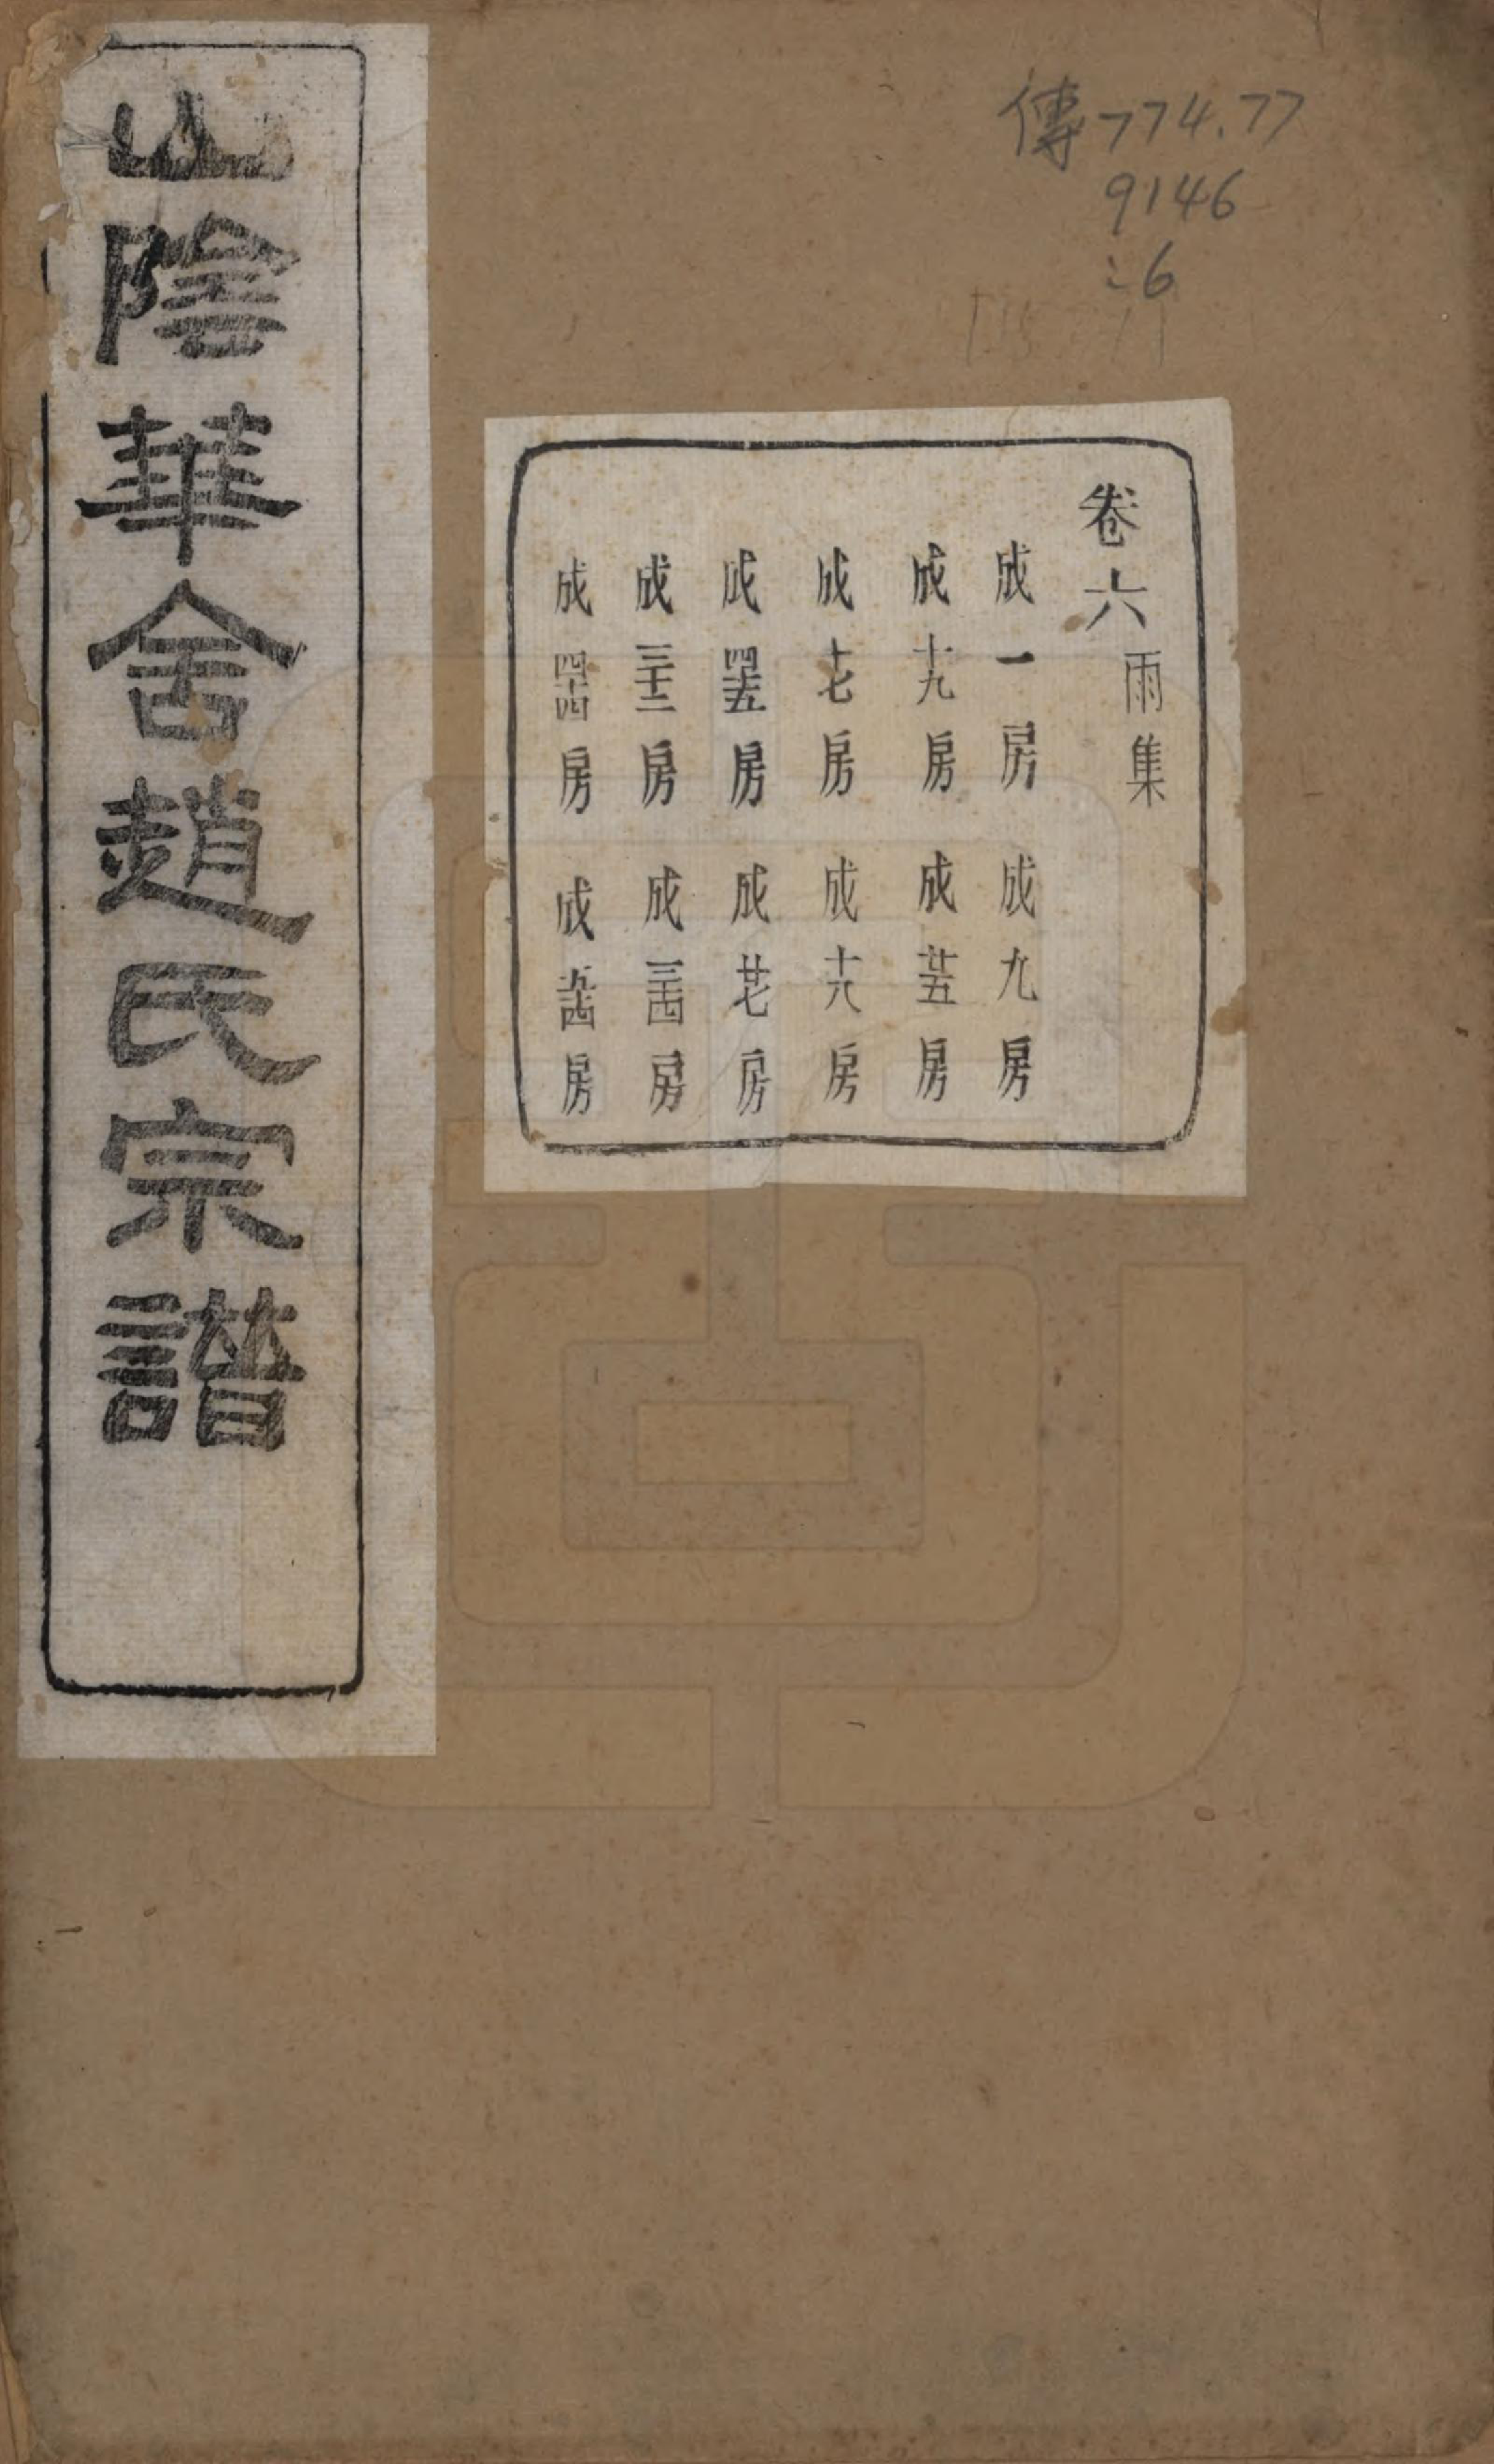 傳774.77
9146
:6
卷六雨集
成一房 成九房
成十九房 成廿五房
成十七房 成十六房
成四十五房 成廿七房
成三十二房 成三十四房
成四十四房 成五十四房
山陰華舍趙氏宗譜